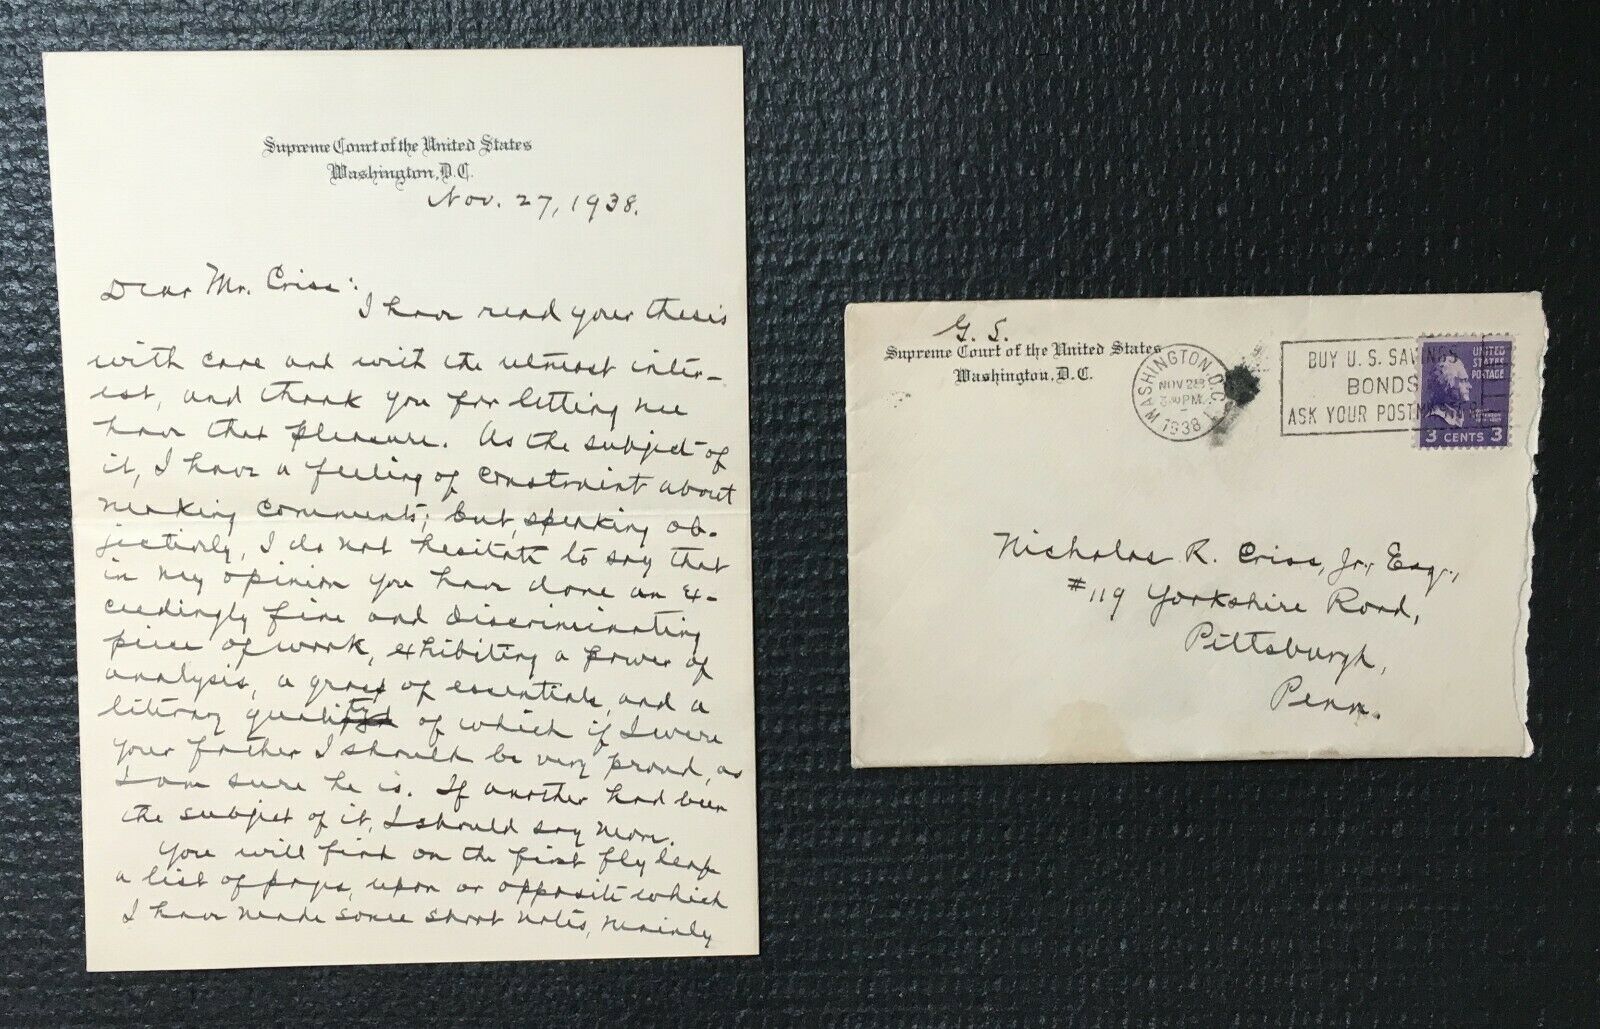 Supreme Court of the United States
Washington, D.C.
Nov. 27, 1938.
Dear Mr. Criss:
I have read your thesis
with care and with the utmost inter-
est, and thank you for letting me
have that pleasure. As the subject of
it, I have a feeling of constraint about
making comments; but, speaking ob-
jectively, I do not hesitate to say that
in my opinion you have done an ex-
ceedingly fine and discriminating
piece of work, exhibiting a power of
analysis, a grasp of essentials, and a
literary quality of which if I were
your father I should be very proud, as
I am sure he is. If another had been
the subject of it, I should say more.
You will find on the first fly leaf
a list of pages, upon or opposite which
I have made some short notes, mainly
G. S.
Supreme Court of the United States
Washington, D.C.
WASHINGTON, D.C.
NOV 28
PM
1938
BUY U.S. SAVINGS
BONDS
ASK YOUR POSTM
UNITED
STATES
POSTAGE
3 CENTS 3
Nicholas R. Criss, Jr., Esq.,
#119 Yorkshire Road,
Pittsburgh,
Penn.